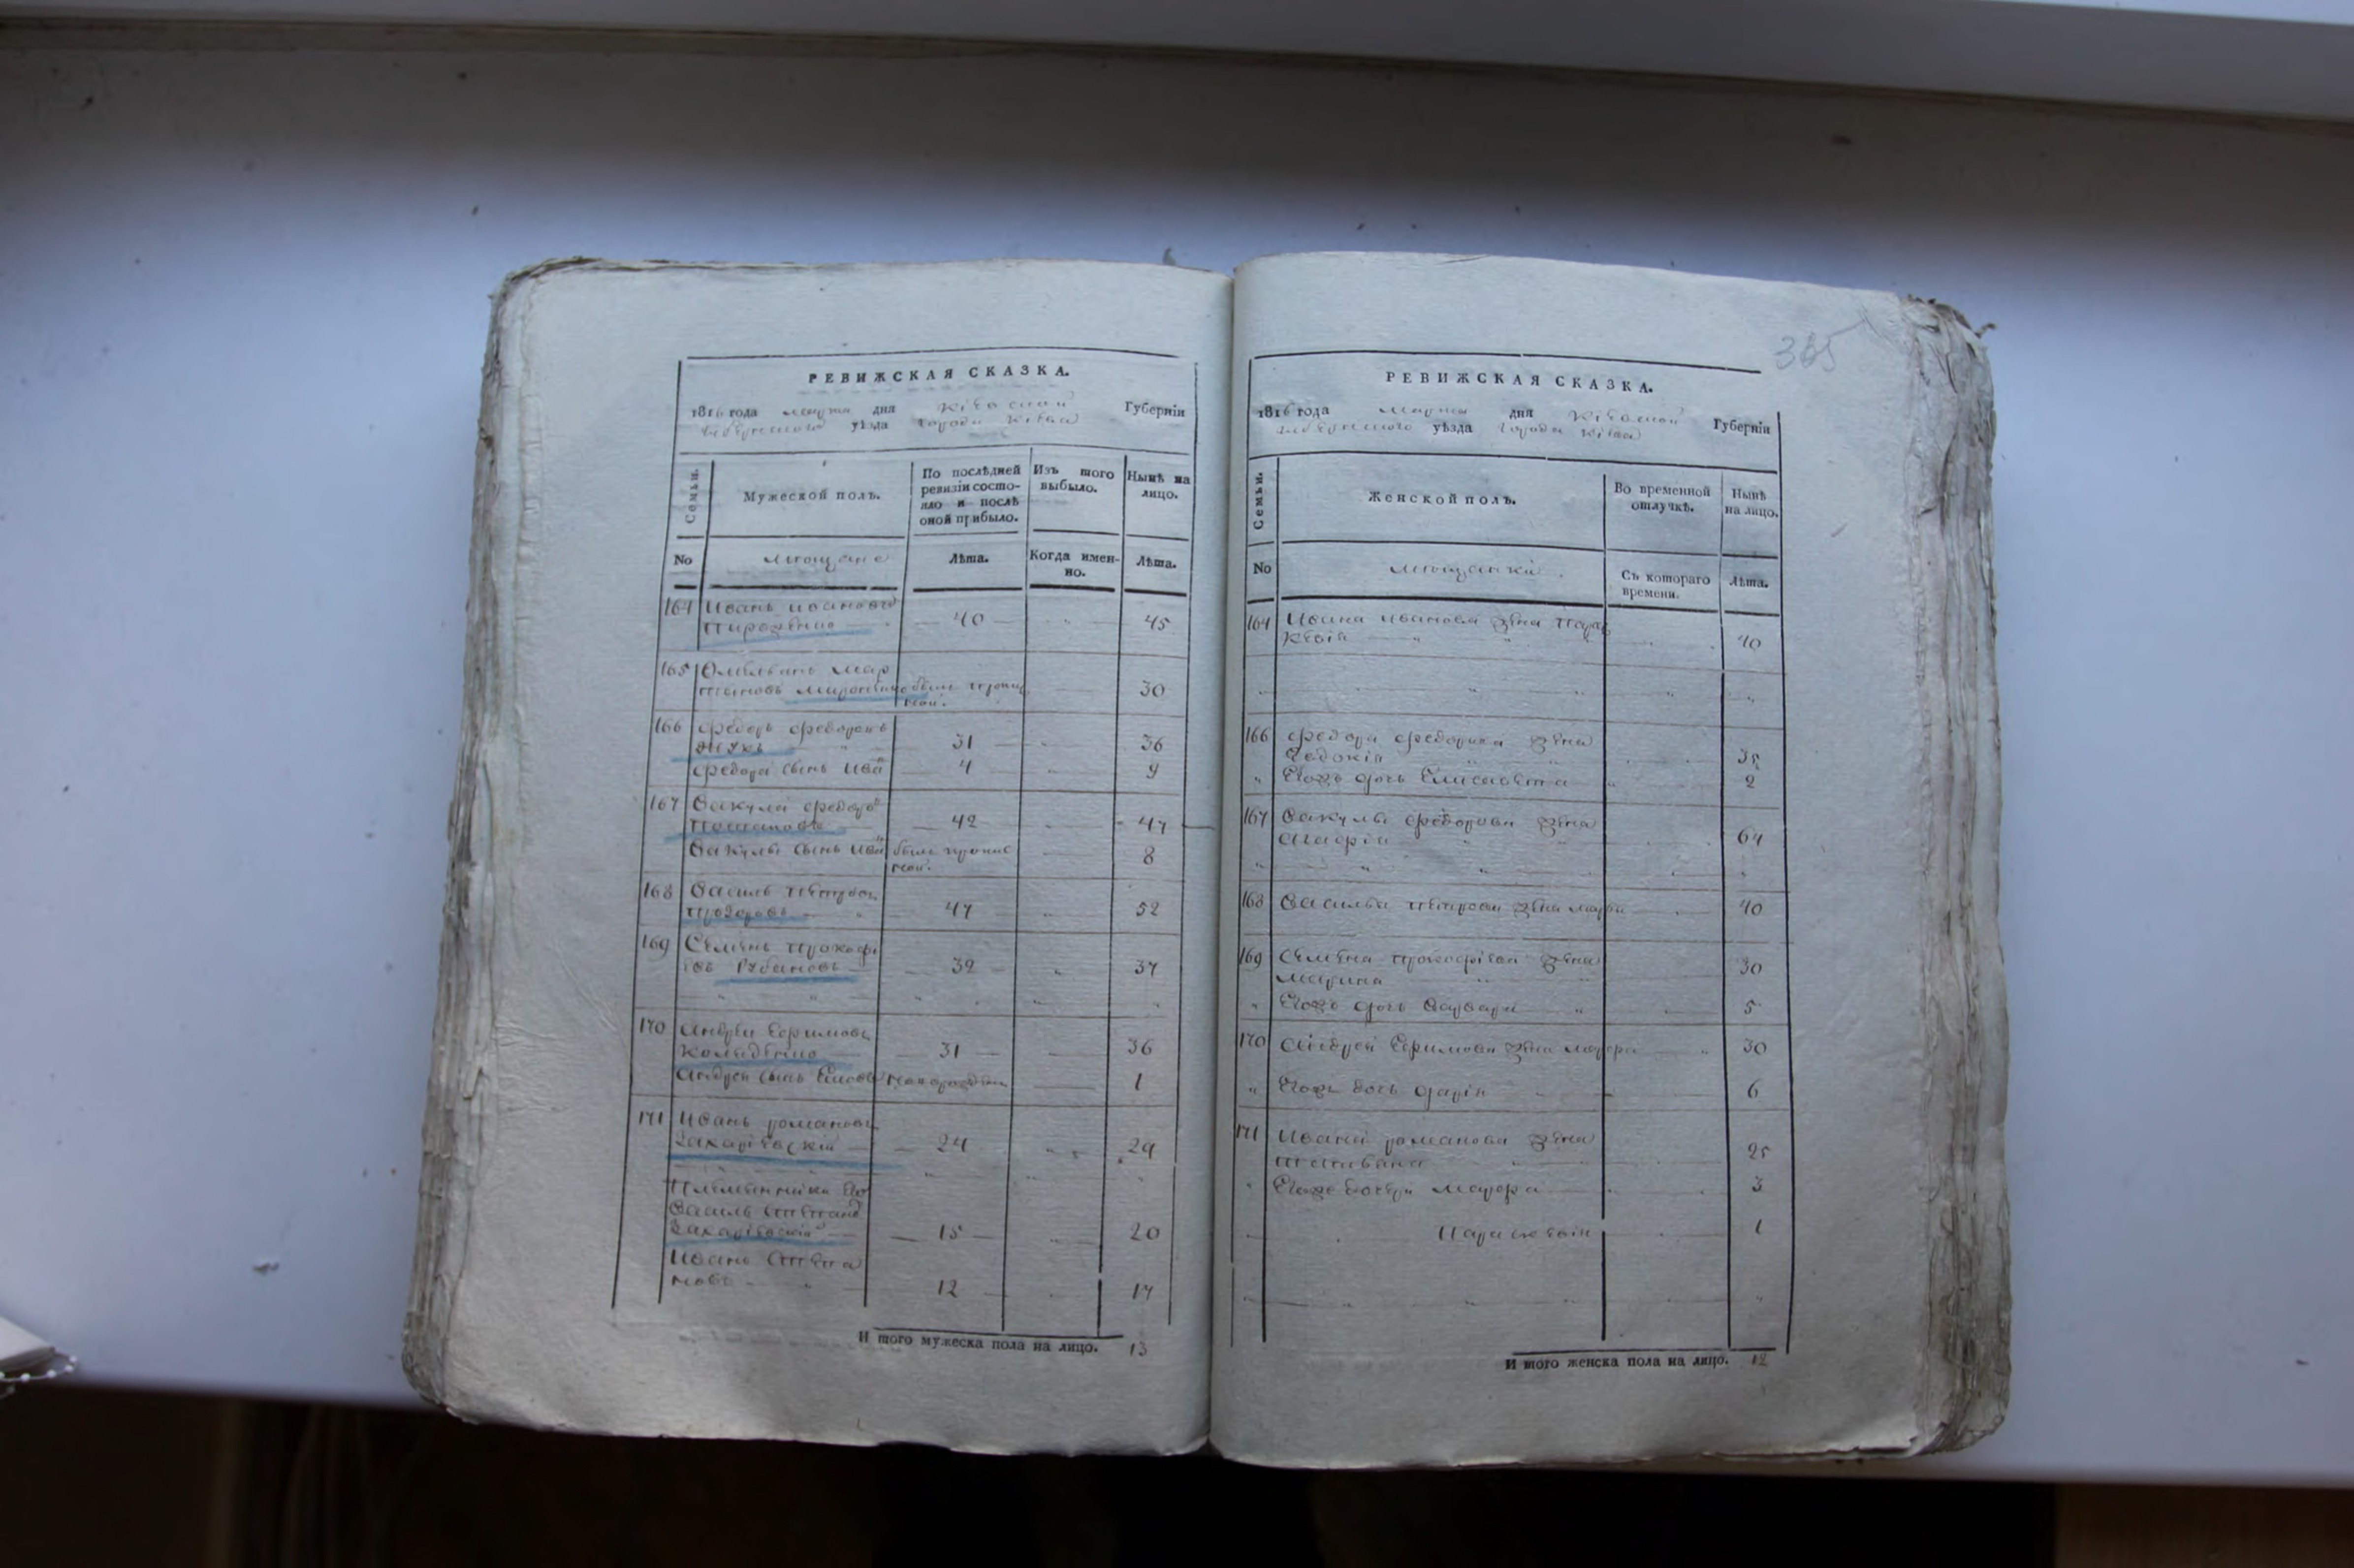 РЕВИЖСКАЯ СКАЗКА.
1816 года марта дня Кіевской Губерніи
уѣзда города Кіева
Семьи.
Мужеской полъ.
По послѣдней ревизіи состояло и послѣ оной прибыло.
Изъ того выбыло.
Нынѣ на лицо.
No
мещане
Лѣта.
Когда имен-
но.
Лѣта.
164 Иванъ Ивановъ
Пироженко 40 45
165 Омельянъ Мар
тыновъ Мироненко былъ пропис
ной. 30
166 Федоръ Федоровъ
Жукъ 31 36
Федора сынъ Ива 4 9
167 Вакула Федоро
Потаповъ 42 47
Вакулы сынъ Ива былъ пропис
ной. 8
168 Василь Петровъ
47 52
169 Семенъ Прокофі
евъ Рубановъ 32 37
170 Андрей Ефимовъ
Коляденко 31 36
Андрея сынъ новорожден 1
171 Иванъ Романовъ
Захаріевскій 24 29
Племянники его
Василь Степано
Захаріевскій 15 20
Иванъ Степа
новъ 12 17
И того мужеска пола на лицо. 13
385
РЕВИЖСКАЯ СКАЗКА.
1816 года марта дня Кіевской Губерніи
уѣзда города Кіева
Семьи.
Женской полъ.
Во временной
отлучкѣ.
Нынѣ
на лицо.
No
мещанки
Съ котораго
времени.
Лѣта.
164 Ивана Иванова жена Парас
кевія 40
166 Федора Федорова жена
Евдокія 35
Егожъ дочь Елисавета 2
167 Вакулы Федорова жена
Агафія 64
168 Василя Петрова жена Марфа 40
169 Семена Прокофіева жена
Марина 30
Егожъ дочь Варвара 5
170 Андрея Ефимова жена Марфа 30
Егожъ дочь Дарія 6
171 Ивана Романова жена
Татіана 25
Егоже дочери Марфа 3
Параскевія 1
И того женска пола на лицо. 12